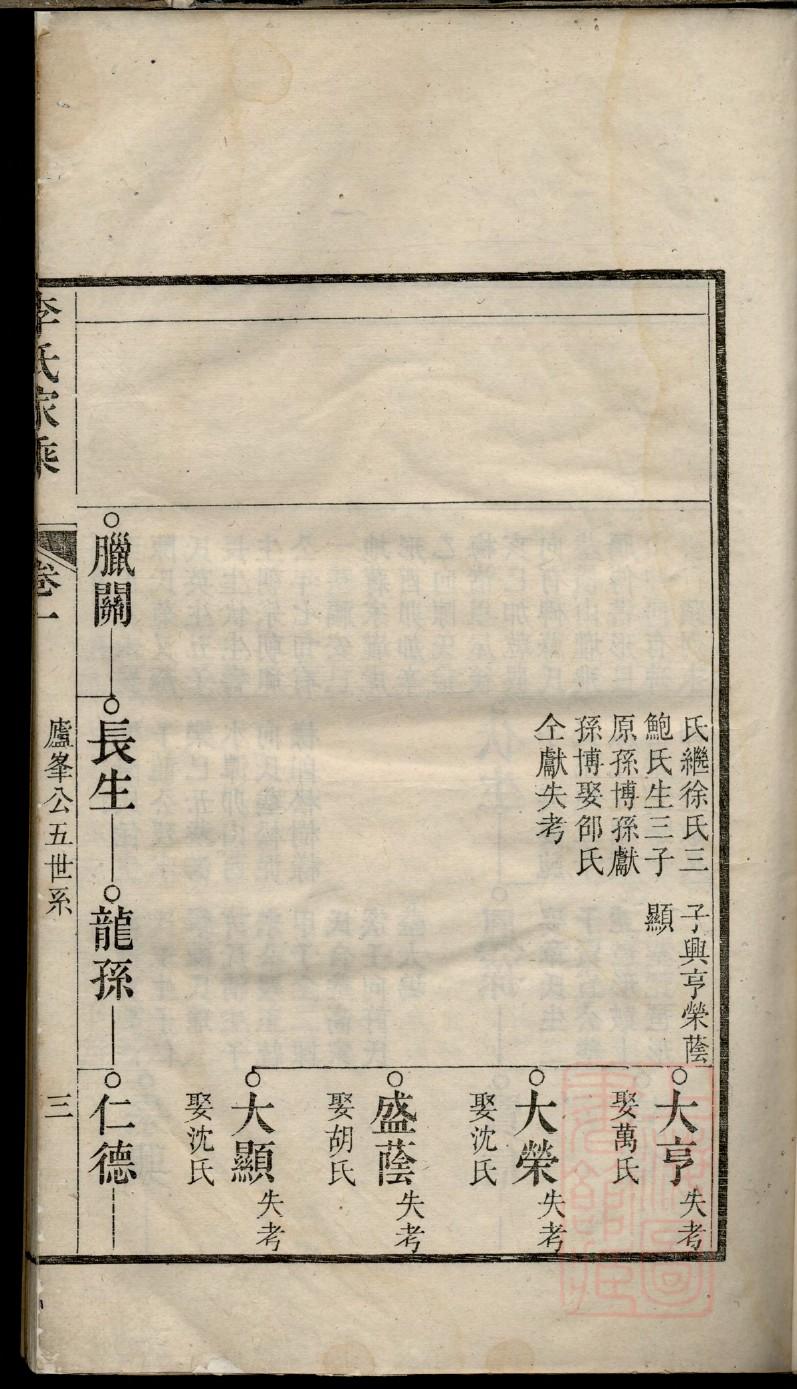 氏繼徐氏三
鮑氏生三子
原孫博孫獻
孫博娶邰氏
仝獻失考
子興亨榮蔭
顯
大亨
失考
娶萬氏
大榮
失考
娶沈氏
盛蔭
失考
娶胡氏
大顯
失考
娶沈氏
臘關
長生
龍孫
仁德
李氏家乘
卷一
廬峯公五世系
三